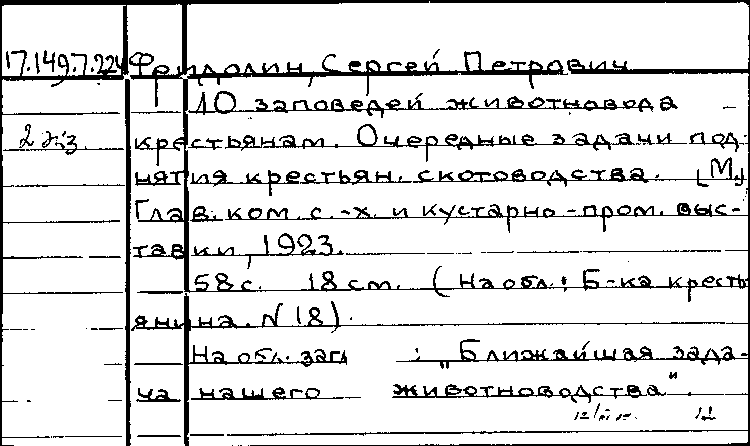 17.149.7.224 Фридолин, Сергей Петрович
10 заповедей животновода
2 экз. крестьянам. Очередные задачи под-
нятия крестьян. скотоводства. [М.,]
Глав. ком. с.-х. и кустарно-пром. выс-
тавки, 1923.
58 с. 18 см. (На обл.: Б-ка кресть
янина. N 18).
На обл. загл : „Ближайшая зада-
ча нашего животноводства".